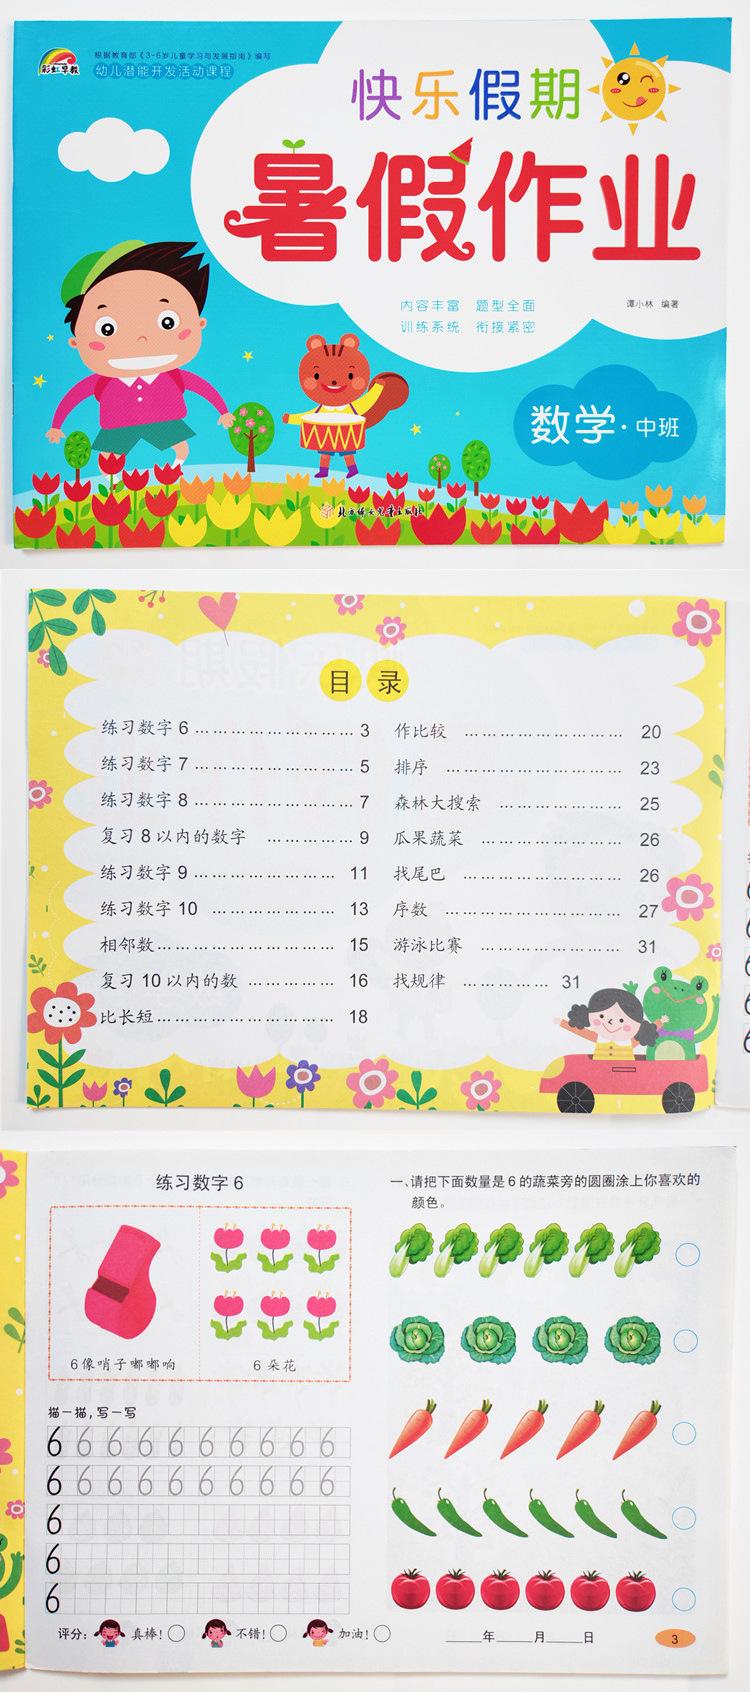 彩虹早教
根据教育部《3-6岁儿童学习与发展指南》编写
幼儿潜能开发活动课程
快乐假期
暑假作业
内容丰富 题型全面
训练系统 衔接紧密
谭小林 编著
数学·中班
北方妇女儿童出版社
目录
练习数字 6 ………………………… 3
练习数字 7 ………………………… 5
练习数字 8 ………………………… 7
复习 8 以内的数字 …………… 9
练习数字 9 ……………………… 11
练习数字 10 …………………… 13
相邻数…………………………… 15
复习 10 以内的数 …………… 16
比长短…………………………… 18
作比较 ………………………… 20
排序 …………………………… 23
森林大搜索 …………………… 25
瓜果蔬菜 ……………………… 26
找尾巴 ………………………… 26
序数 …………………………… 27
游泳比赛 ……………………… 31
找规律 …………… 31
练习数字 6
6像哨子嘟嘟响
6 朵花
描一描,写一写
6 6 6 6 6 6 6 6 6 6
6 6 6 6 6 6 6 6 6 6
6
6
6
评分: 真棒! 不错! 加油!
一、请把下面数量是 6 的蔬菜旁的圆圈涂上你喜欢的
颜色。
____年____月____日
3